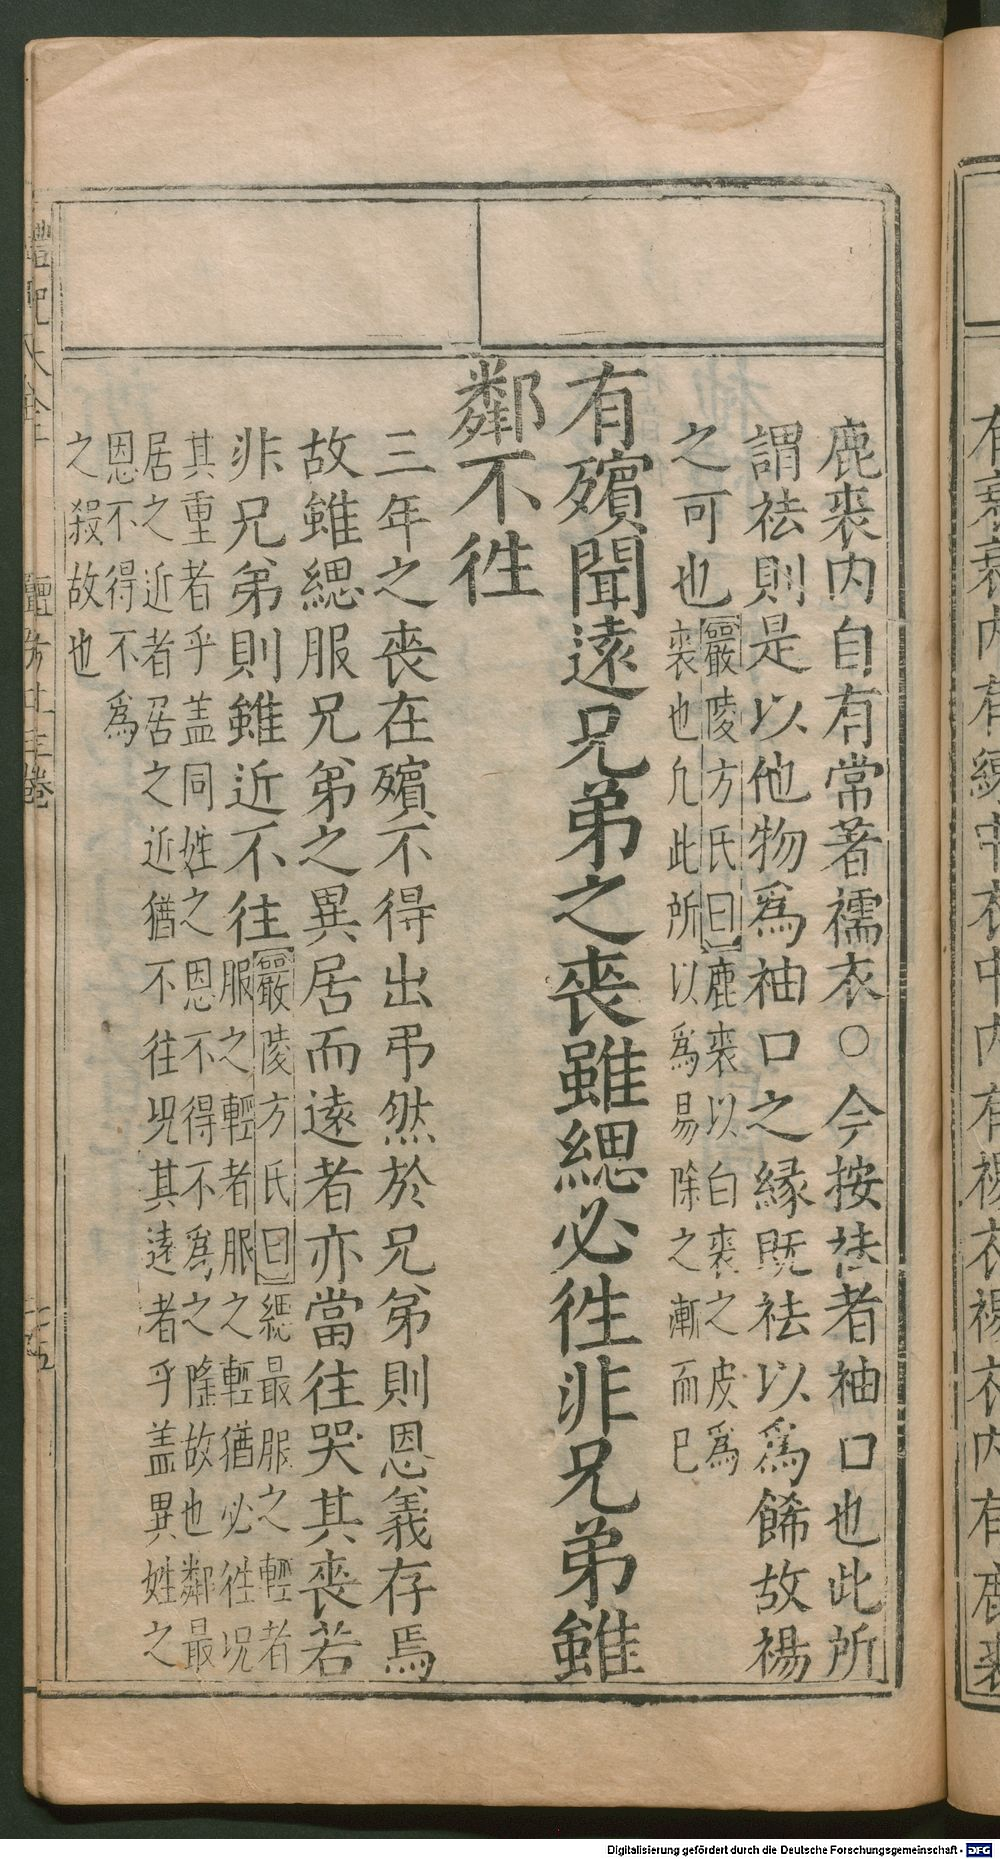 鹿裘内自有常著襦衣○今按袪者袖口也此所
謂袪則是以他物爲袖口之縁既袪以爲餙故裼
之可也
嚴陵方氏曰鹿裘以白裘之皮爲
裘也凢此所以爲易除之漸而已
有殯聞遠兄弟之喪雖緦必徃非兄弟雖
鄰不徃
三年之喪在殯不得出弔然於兄弟則恩義存焉
故雖緦服兄弟之異居而遠者亦當往哭其喪若
非兄弟則雖近不往
嚴陵方氏曰緦最服之輕者
服之輕者服之輕猶必徃况
其重者乎盖同姓之恩不得不爲之隆故也鄰最
居之近者居之近猶不往况其遠者乎盖異姓之
恩不得不爲
之殺故也
禮記大全
檀弓上三卷
七五
Digitalisierung gefördert durch die Deutsche Forschungsgemeinschaft - DFG